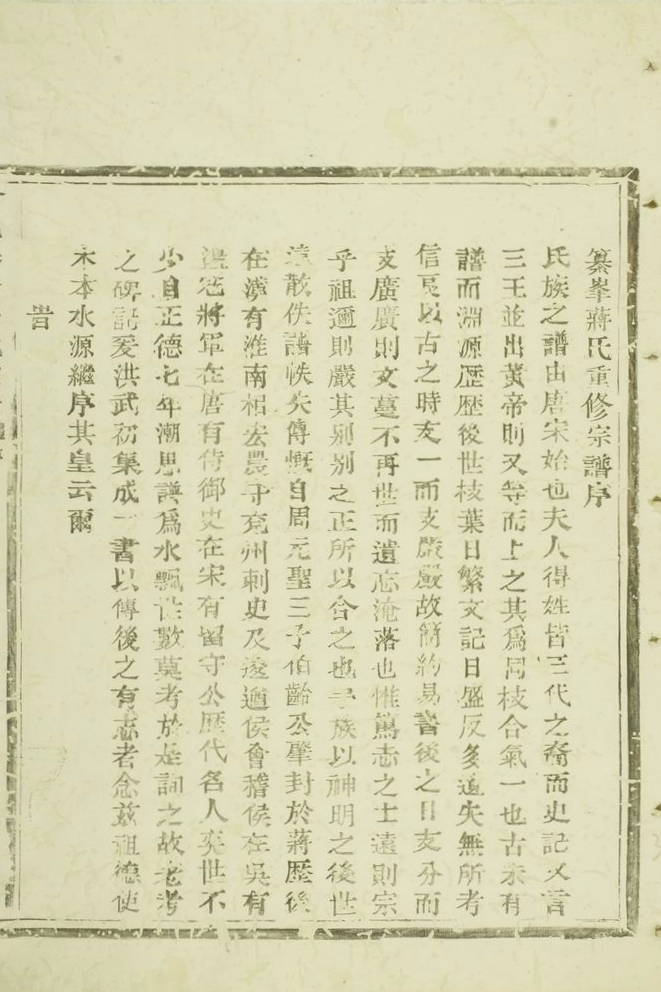 纂峯蔣氏重修宗譜序
氏族之譜由唐宋始也夫人得姓皆三代之裔而史記又言
三王並出黃帝則又等而上之其為同枝合氣一也古未有
譜而淵源歷歷後世枝葉日繁文記日盛反多遺失無所考
信良以古之時支一而支嚴嚴故簡約易書後之日支分而
支廣廣則文蔓不再世而遺忘淹落也惟篤志之士遠則宗
乎祖邇則嚴其别别之正所以合之也予族以神明之後世
遠散佚譜帙失傳慨自周元聖三子伯齡公肇封於蔣歷後
在漢有淮南相宏農守兗州刺史及逡遒侯會稽侯在吳有
冠將軍在唐有侍御史在宋有留守公歷代各人奕世不
少自正德七年潮思譜爲水飄世數莫考於是詢之故老考
之碑記爰洪武初集成一書以傳後之有志者念茲祖德使
木本水源繼序其皇云爾
旹